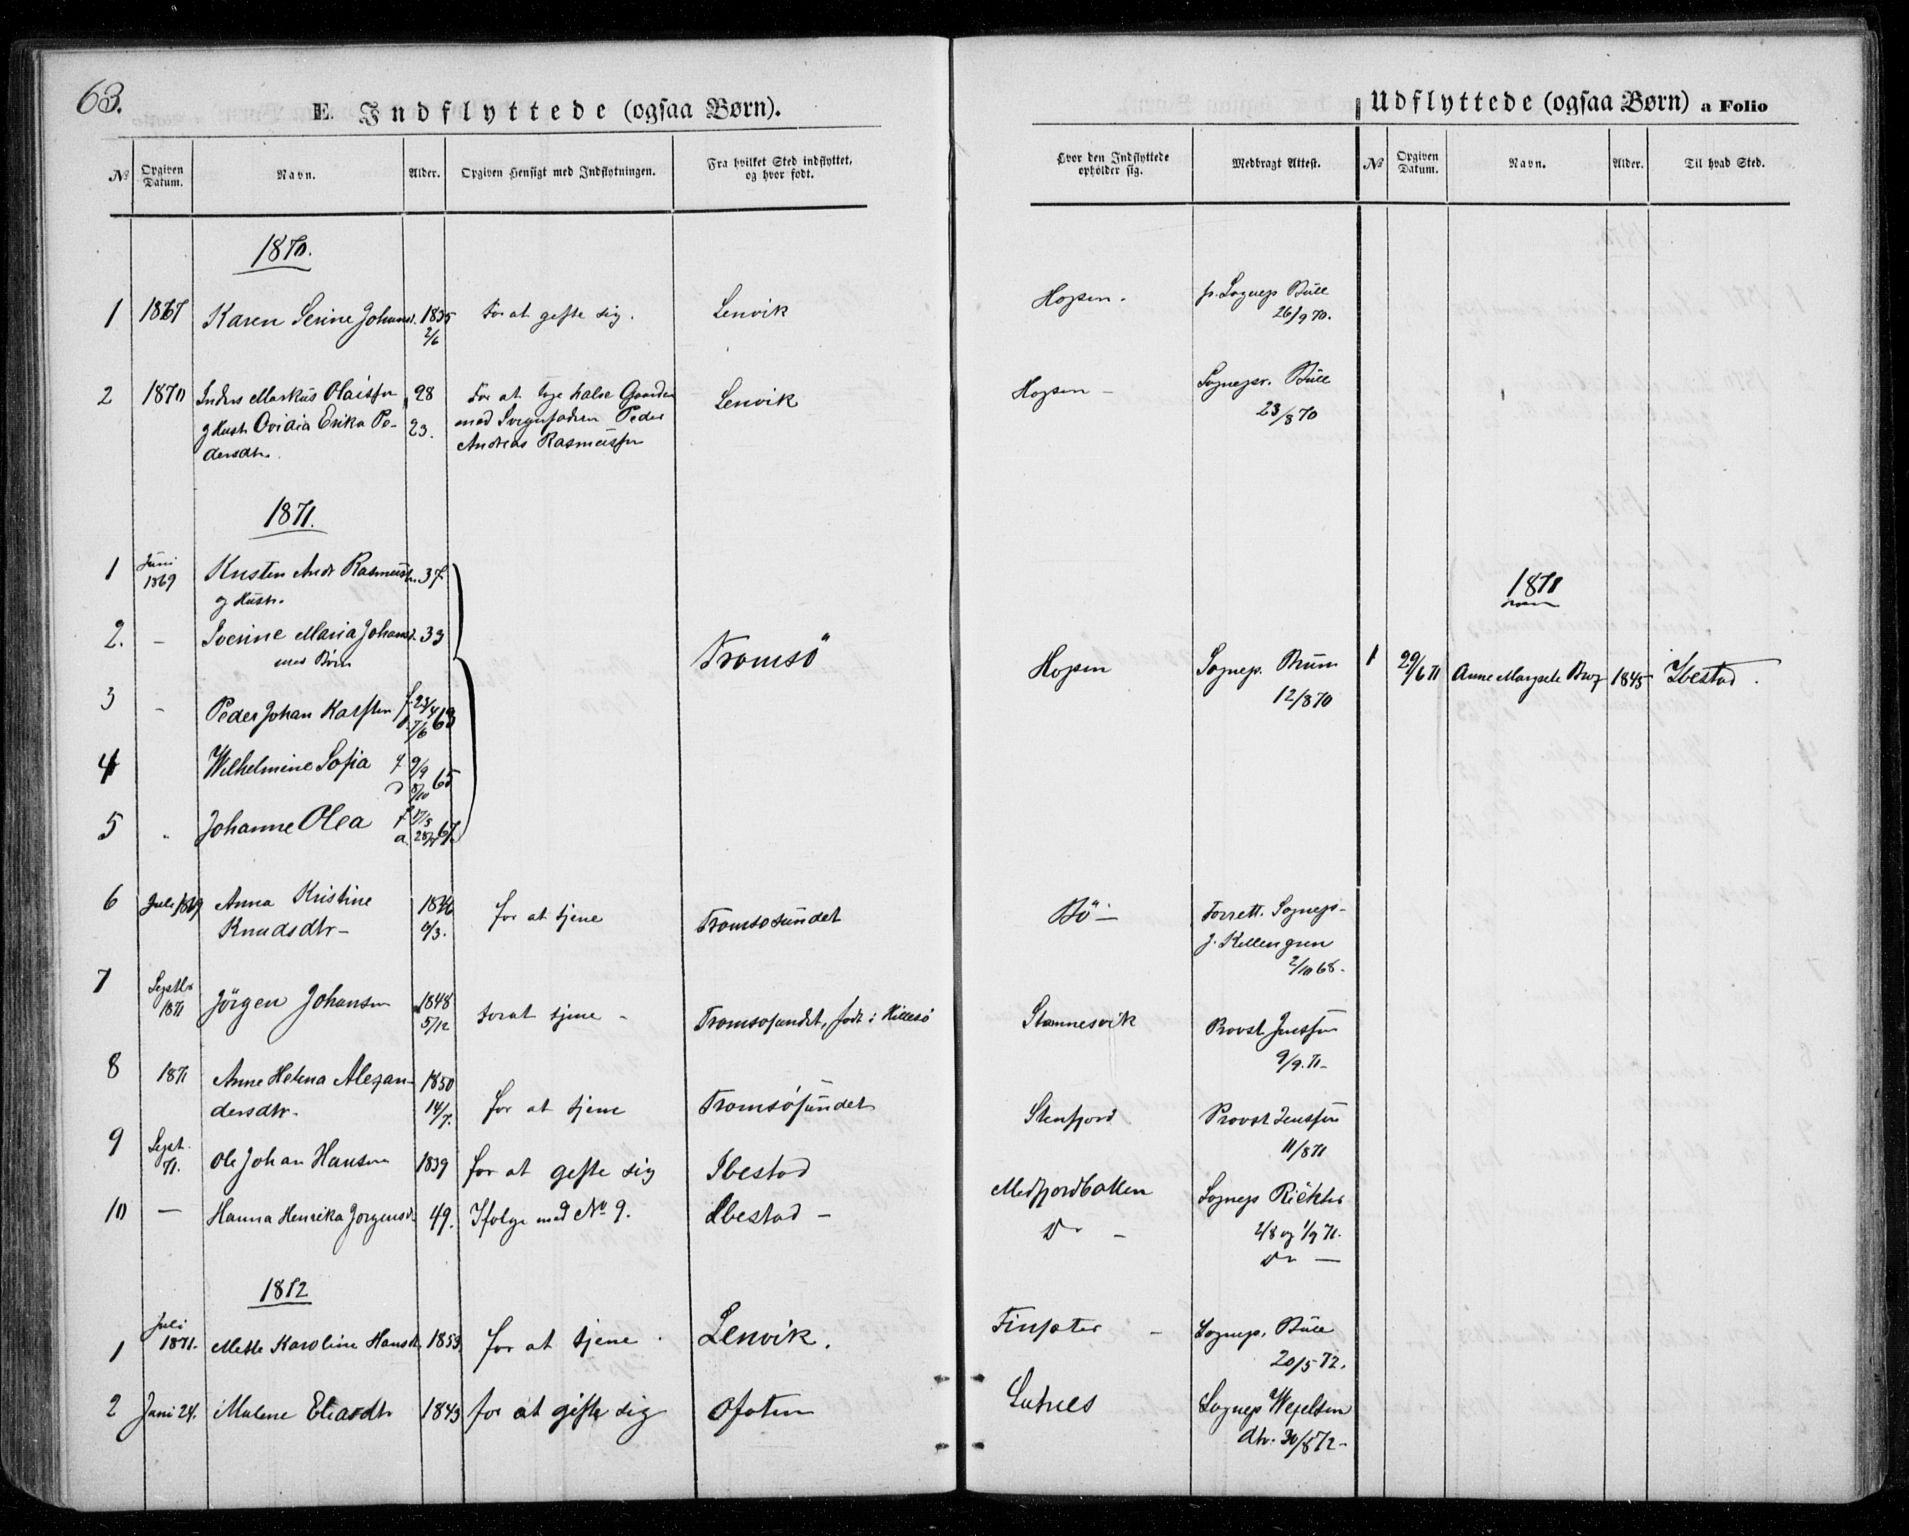 63.
E. Indflyttede (ogsaa Børn).
Udflyttede (ogsaa Børn) a Folio
No Opgiven Datum. Navn. Alder. Opgiven Hensigt med Indflytningen. Fra hvilket Sted indflyttet, og hvor født. Hvor den Indflyttede opholder sig. Medbragt Attest. No Opgiven Datum. Navn. Alder. Til hvad Sted.
1870.
1 1867 Karen Serine Johansd. 1835 For at gifte sig. Lenvik Hopen. fr. Sognep Bull
2/6 26/9 70.
2 1870 Markus Olaissen 28 For at Gaarden Lenvik Hopen - Sognepr. Bull
g Hustr Ovidia Erika Pe- 23. med Svigerfaderen Peder 23/8 70
dersdtr. Andreas Rasmussen
1871.
1 Juni 1869 Andr Rasmussen 37
og Hustr. 1871
2. - Iverine Maria Johansd. 33
med Børn Tromsö Hopen Sognep. 1 29/6 71 Anne Margrete 1845 Ibestad.
12/8 70
3 - Peder Johan f. 23/4 63
d. 7/6
4 Wilhelmine Sofia f 9/9 65
d 8/10
5 " Johanne Olea f 17/5 67.
6 Juli 1869 Anna Kristine for at tjene Tromsosundet Bö - Sognep-
Knudsdtr- /3.
2/10 68.
7 Septbr 1871 Jörgen Johansen 1848 For at tjene - Tromsosundet, født i Hillesö Stamnesvik Provst Jenssen
5/12 9/9. 71-
8 1871 Anne Helena Alexan- 1850 for at tjene Tromsösundet Stenfjord Provst Jenssen
dersdtr. 14/7. 11/8 71
9 Sept. 71. Ole Johan Hansen 1839 for at gifte sig Ibestad Medfjordbotten Sognep Richter
2/8 og 1/9 71.
10 - Hanna Henrika Jorgensd. 49. Ifølge med No 9. Ibestad - Do - Do -
1872
1 Juli 1871. Mette Karoline Hansdtr. 1853 for at tjene. Lenvik. Finsæter - Sognep. Bull
20/5 72.
2 Juni 24. Malene Eliasdtr 1843 for at gifte sig Ofoten Lutnes Sognep Wexelsen
dtr. 30/5 72-